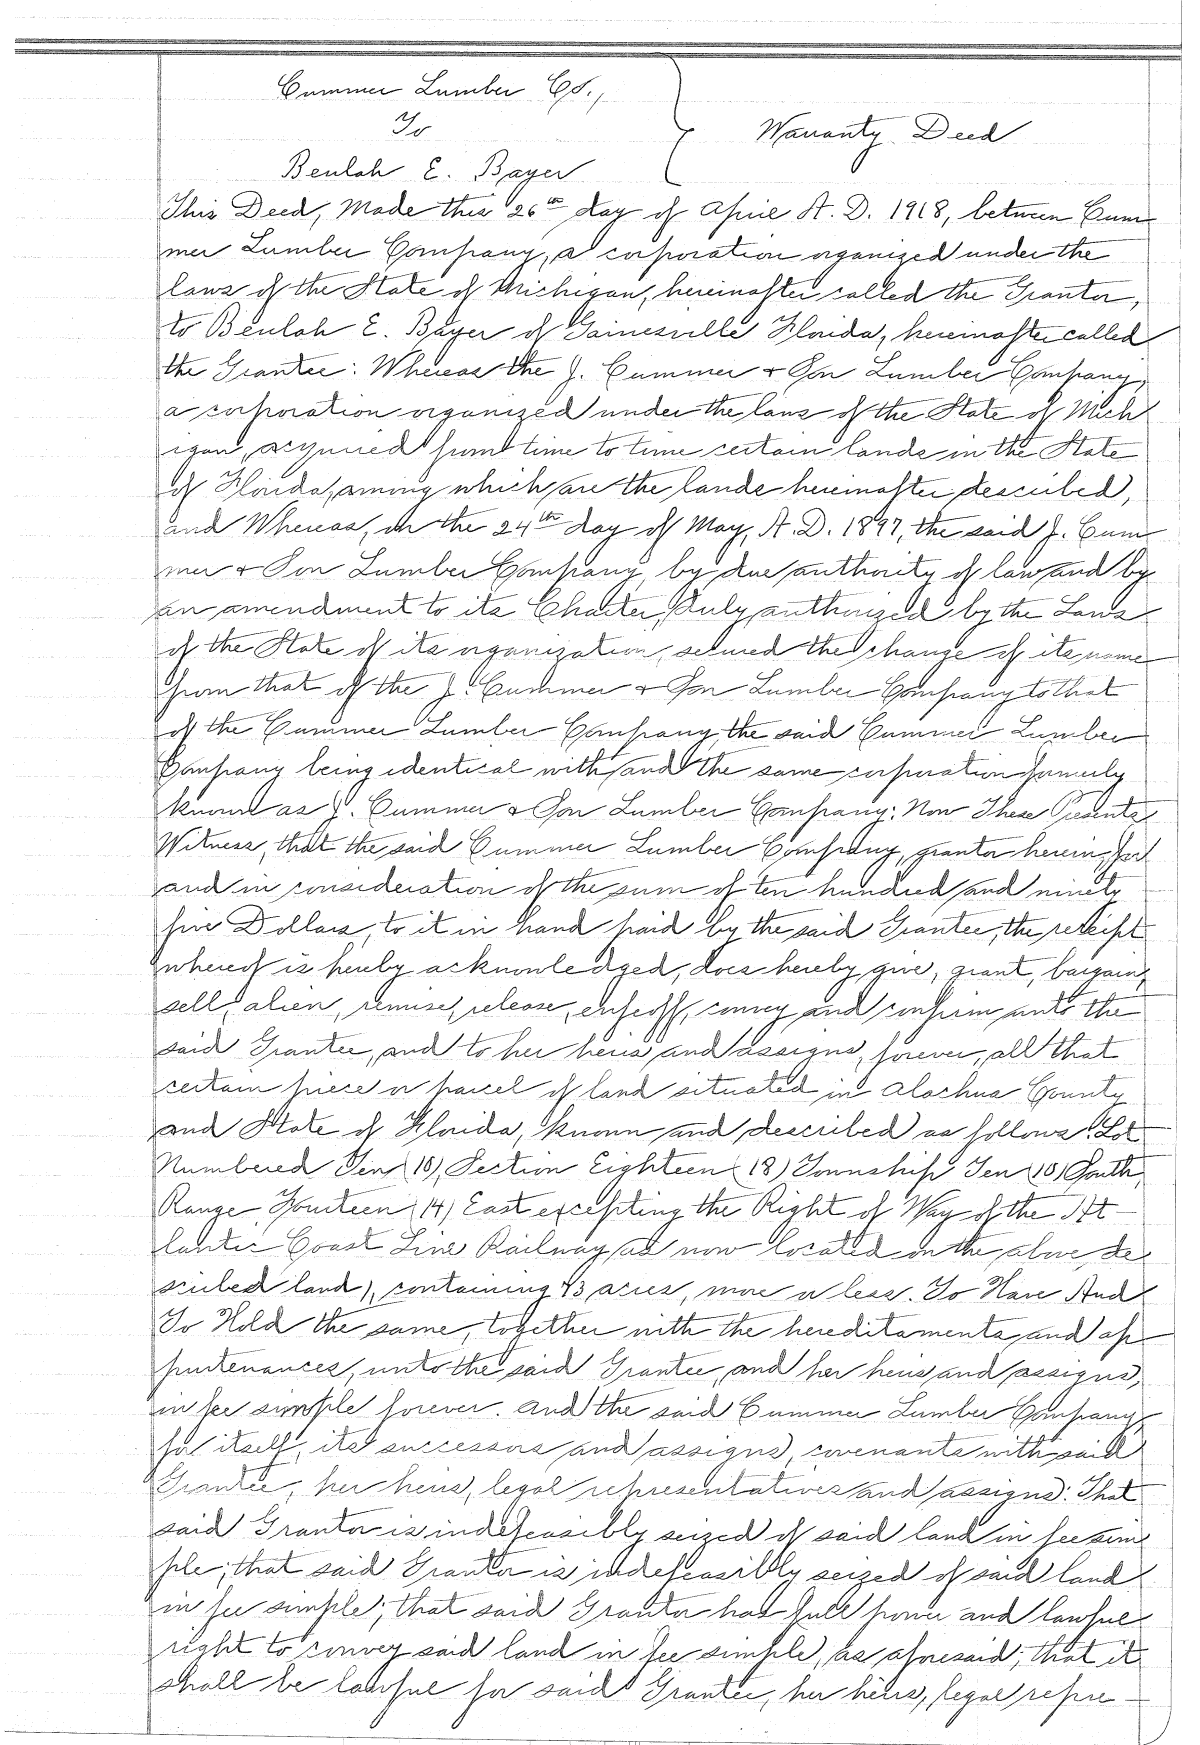 Cummer Lumber Co.,
To
Warranty Deed
Beulah E. Bayer
This Deed, Made this 26th day of April A. D. 1918, between Cum
mer Lumber Company, a corporation organized under the
laws of the State of Michigan, hereinafter called the Grantor,
to Beulah E. Bayer of Gainesville Florida, hereinafter called
the Grantee: Whereas the J. Cummer & Son Lumber Company,
a corporation organized under the laws of the State of Mich
igan, acquired from time to time certain lands in the State
of Florida, among which are the lands hereinafter described,
and Whereas, on the 24th day of May, A. D. 1897, the said J. Cum
mer & Son Lumber Company, by due authority of law and by
an amendment to its Charter, duly authorized by the Laws
of the State of its organization, secured the change of its name
from that of the J. Cummer & Son Lumber Company to that
of the Cummer Lumber Company, the said Cummer Lumber
Company being identical with and the same corporation formerly
known as J. Cummer & Son Lumber Company: Now These Presents
Witness, that the said Cummer Lumber Company, grantor herein, for
and in consideration of the sum of ten hundred and ninety
five Dollars, to it in hand paid by the said Grantee, the receipt
whereof is hereby acknowledged, does hereby give, grant, bargain,
sell, alien, remise, release, enfeoff, convey and confirm unto the
said Grantee, and to her heirs and assigns, forever, all that
certain piece or parcel of land situated in Alachua County
and State of Florida, known and described as follows: Lot
Numbered Ten (10), Section Eighteen (18) Township Ten (10) South,
Range Fourteen (14) East excepting the Right of Way of the At-
lantic Coast Line Railway, as now located on the above de
scribed land), containing 43 acres, more or less. To Have And
To Hold the same, together with the hereditaments and ap-
purtenances, unto the said Grantee, and her heirs and assigns,
in fee simple forever. And the said Cummer Lumber Company,
for itself, its successors and assigns, covenants with said
Grantee, her heirs, legal representatives and assigns: That
said Grantor is indefeasibly seized of said land in fee sim
ple; that said Grantor is indefeasibly seized of said land
in fee simple; that said Grantor has full power and lawful
right to convey said land in fee simple, as aforesaid; that it
shall be lawful for said Grantee, her heirs, legal repre-